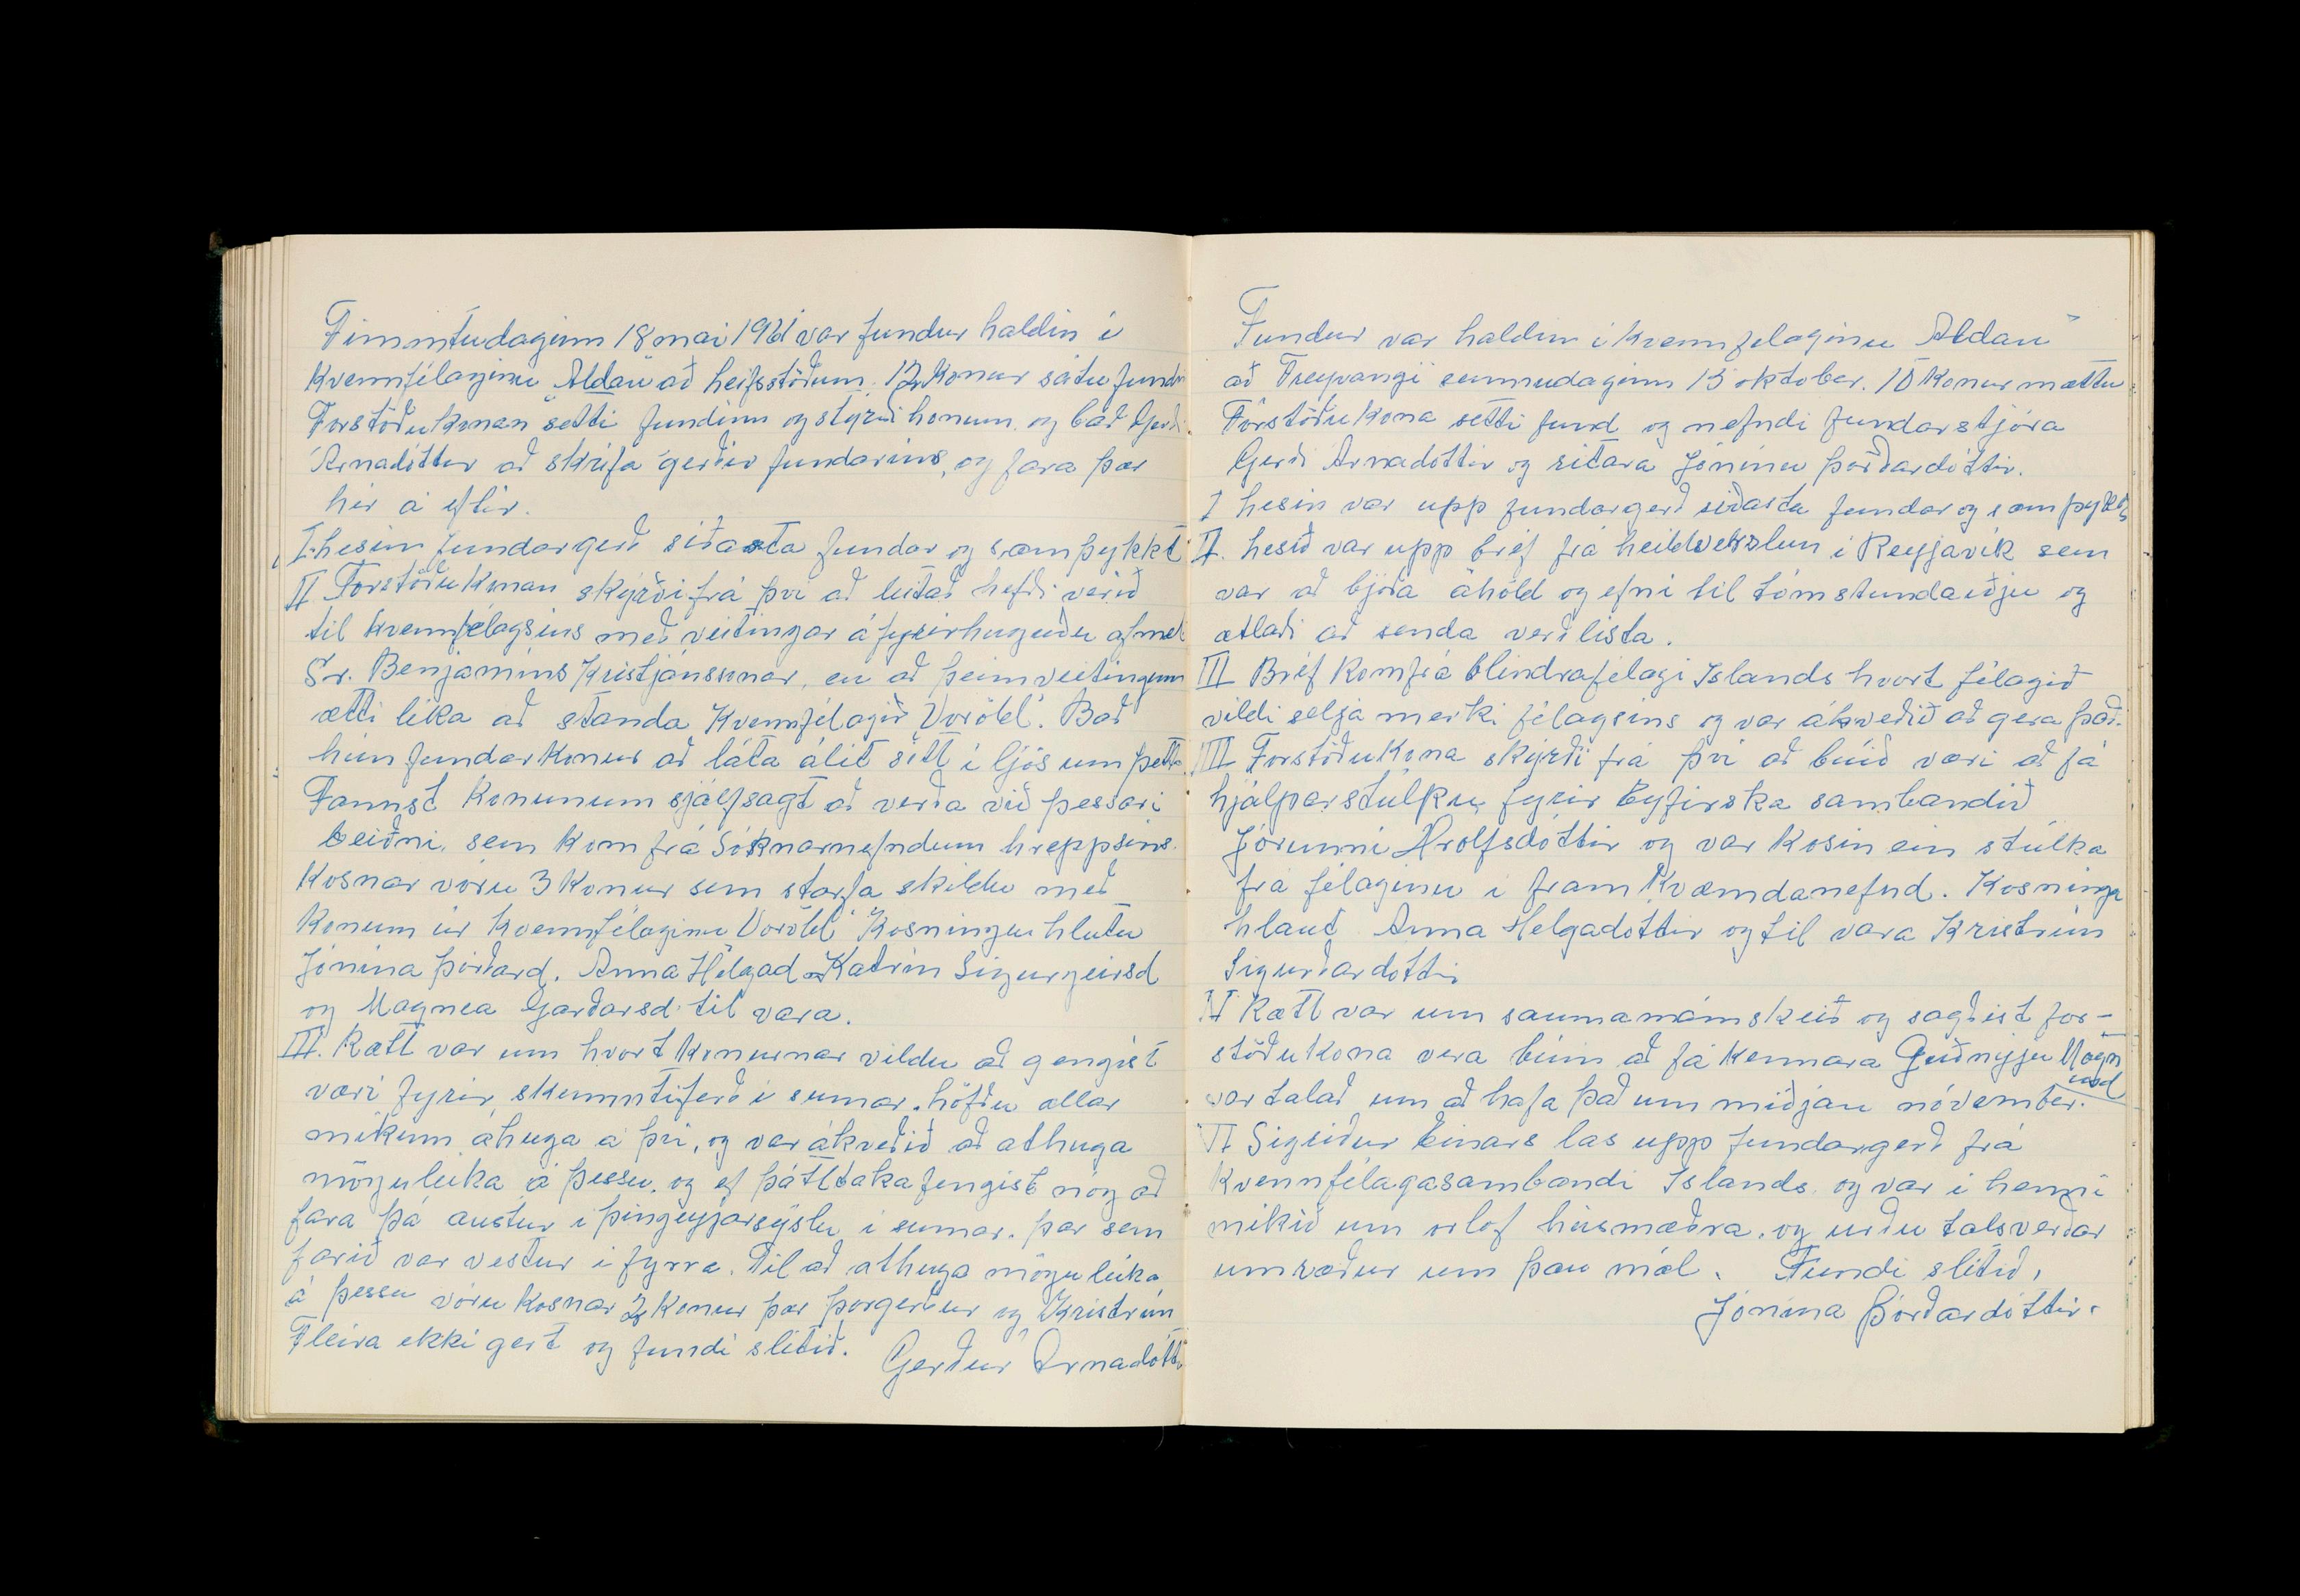 Fimmtudaginn 18 mai 1961 var fundur haldin í
Kvennfélaginu "Aldan" að Leifsstöðum. 12 Konur sátu fundi
Forstöðukonan setti fundinn og stýrði honum og bað Gerði
Árnadóttur að skrifa gerðir fundarins, og fara þær
hér á eftir.
I. Lesin fundargerð síðasta fundar og samþykkt
II Forstöðukonan skýrði frá því að leitað hefði verið
til kvennfélagsins með veitingar á fyrirhuguðu afmæl
Sr. Benjamíns Kristjánssonar, en að þeim veitingum
ætti líka að standa Kvennfélagið "Voröld". Bað
hún fundarkonur að láta álit sitt í ljós um þetta
Fannst Konunum sjálfsagt að verða við þessari
beiðni, sem kom frá Sóknarnefndum hreppsins.
Kosnar voru 3 Konur sem starfa skildu með
Konum úr Kvennfélaginu "Voröld" Kosningu hlutu
Jónína Þórðard. Anna Helgad og Katrín Sigurgeirsd
og Magnea Garðarsd til vara.
III. Rætt var um hvort Konurnar vildu að gengist
væri fyrir skemmtiferð í sumar. höfðu allar
mikum áhuga á því, og var ákveðið að athuga
möguleika á þessu, og ef þátttaka fengist nóg að
fara þá austur í þingeyjarsýslu í sumar. þar sem
farið var vestur í fyrra. Til að athuga möguleika
á þessu voru Kosnar 2 Konur þær Þorgerður og Kristrún
Fleira ekki gert og fundi slitið.
Gerður Árnadótti
Fundur var haldin í Kvennfelaginu Aldan"
að Freyvangi sunnudaginn 15 oktober. 10 Konur mættu
Forstöðukona setti fund og nefndi fundarstjóra
Gerði Arnadóttir og ritara Jónínu Þórðardóttir.
I Lesin var upp fundargerð síðasta fundar og samþykkt
II. Lesið var upp bréf frá heildverslun í Reyjavík sem
var að bjóða áhöld og efni til tómstundaiðju og
ætlaði að senda verðlista.
III Bréf kom frá blindrafélagi Islands hvort félagið
vildi selja merki félagsins og var ákveðið að gera það.
IIII Forstöðukona skýrði frá því að búið væri að fá
hjálparstúlku fyrir Eyfirska sambandið
Jórunni Hrolfsdóttir og var kosin ein stúlka
frá félaginu í framkvæmdanefnd. Kosninga
hlaut Anna Helgadóttir og til vara Kristrún
Sigurðardóttir
V Rætt var um saumanámskeið og sagðist for-
stöðukona vera búin að fá kennara Guðnýju Magn
usd
var talað um að hafa það um miðjan nóvember.
VI Sigriður Einars las upp fundargerð frá
Kvennfélagasambandi Islands og var í henni
mikið um orlof húsmæðra, og urðu talsverðar
umræður um þau mál. Fundi slitið,
Jónína Þórðardóttir.